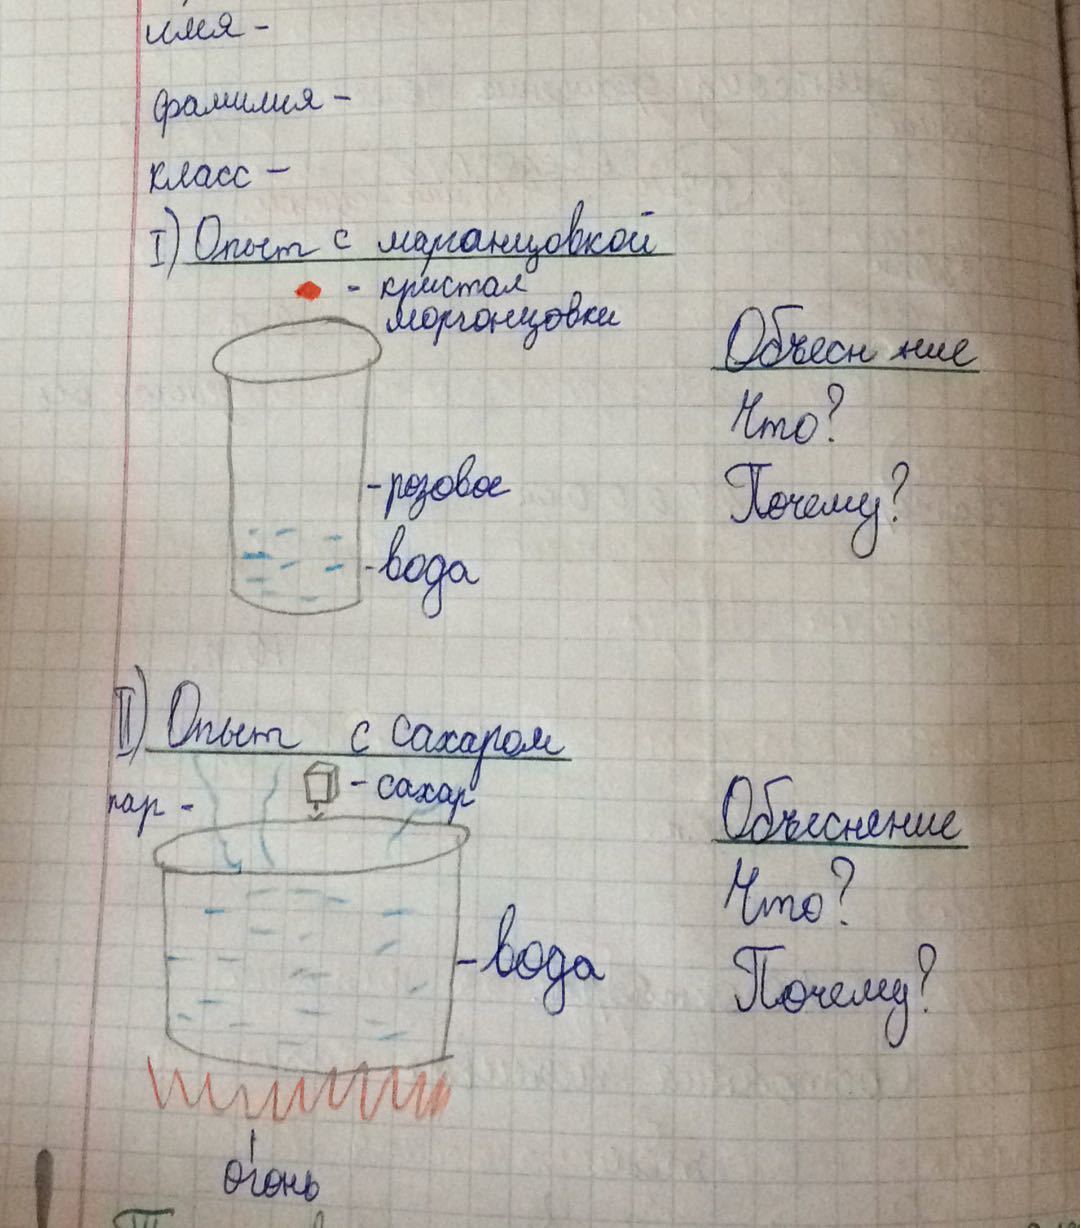 имя -
фамилия -
класс -
I) Опыт с марганцовкой
- кристал
морганцовки
Объесн ние
Что?
Почему?
- розовое
- вода
II) Опыт с сахаром
- сахар
пар -
Объеснение
Что?
Почему?
- вода
огонь